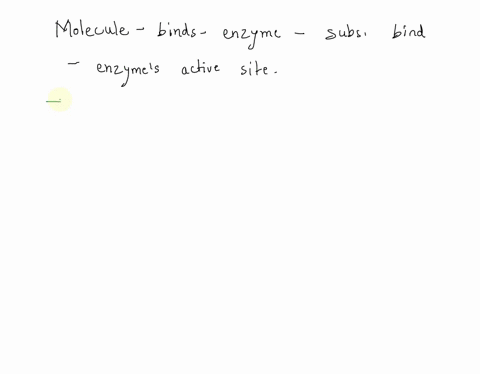 Molecule - binds - enzyme - subs. bind
- enzyme's active site.
-